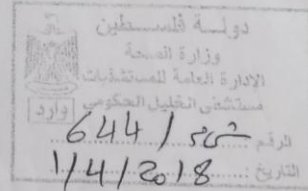 دولة فلسطين
وزارة الصحة
الإدارة العامة للمستشفيات
مستشفى الخليل الحكومي
وارد
الرقم : 644/
التاريخ : 1/4/2018